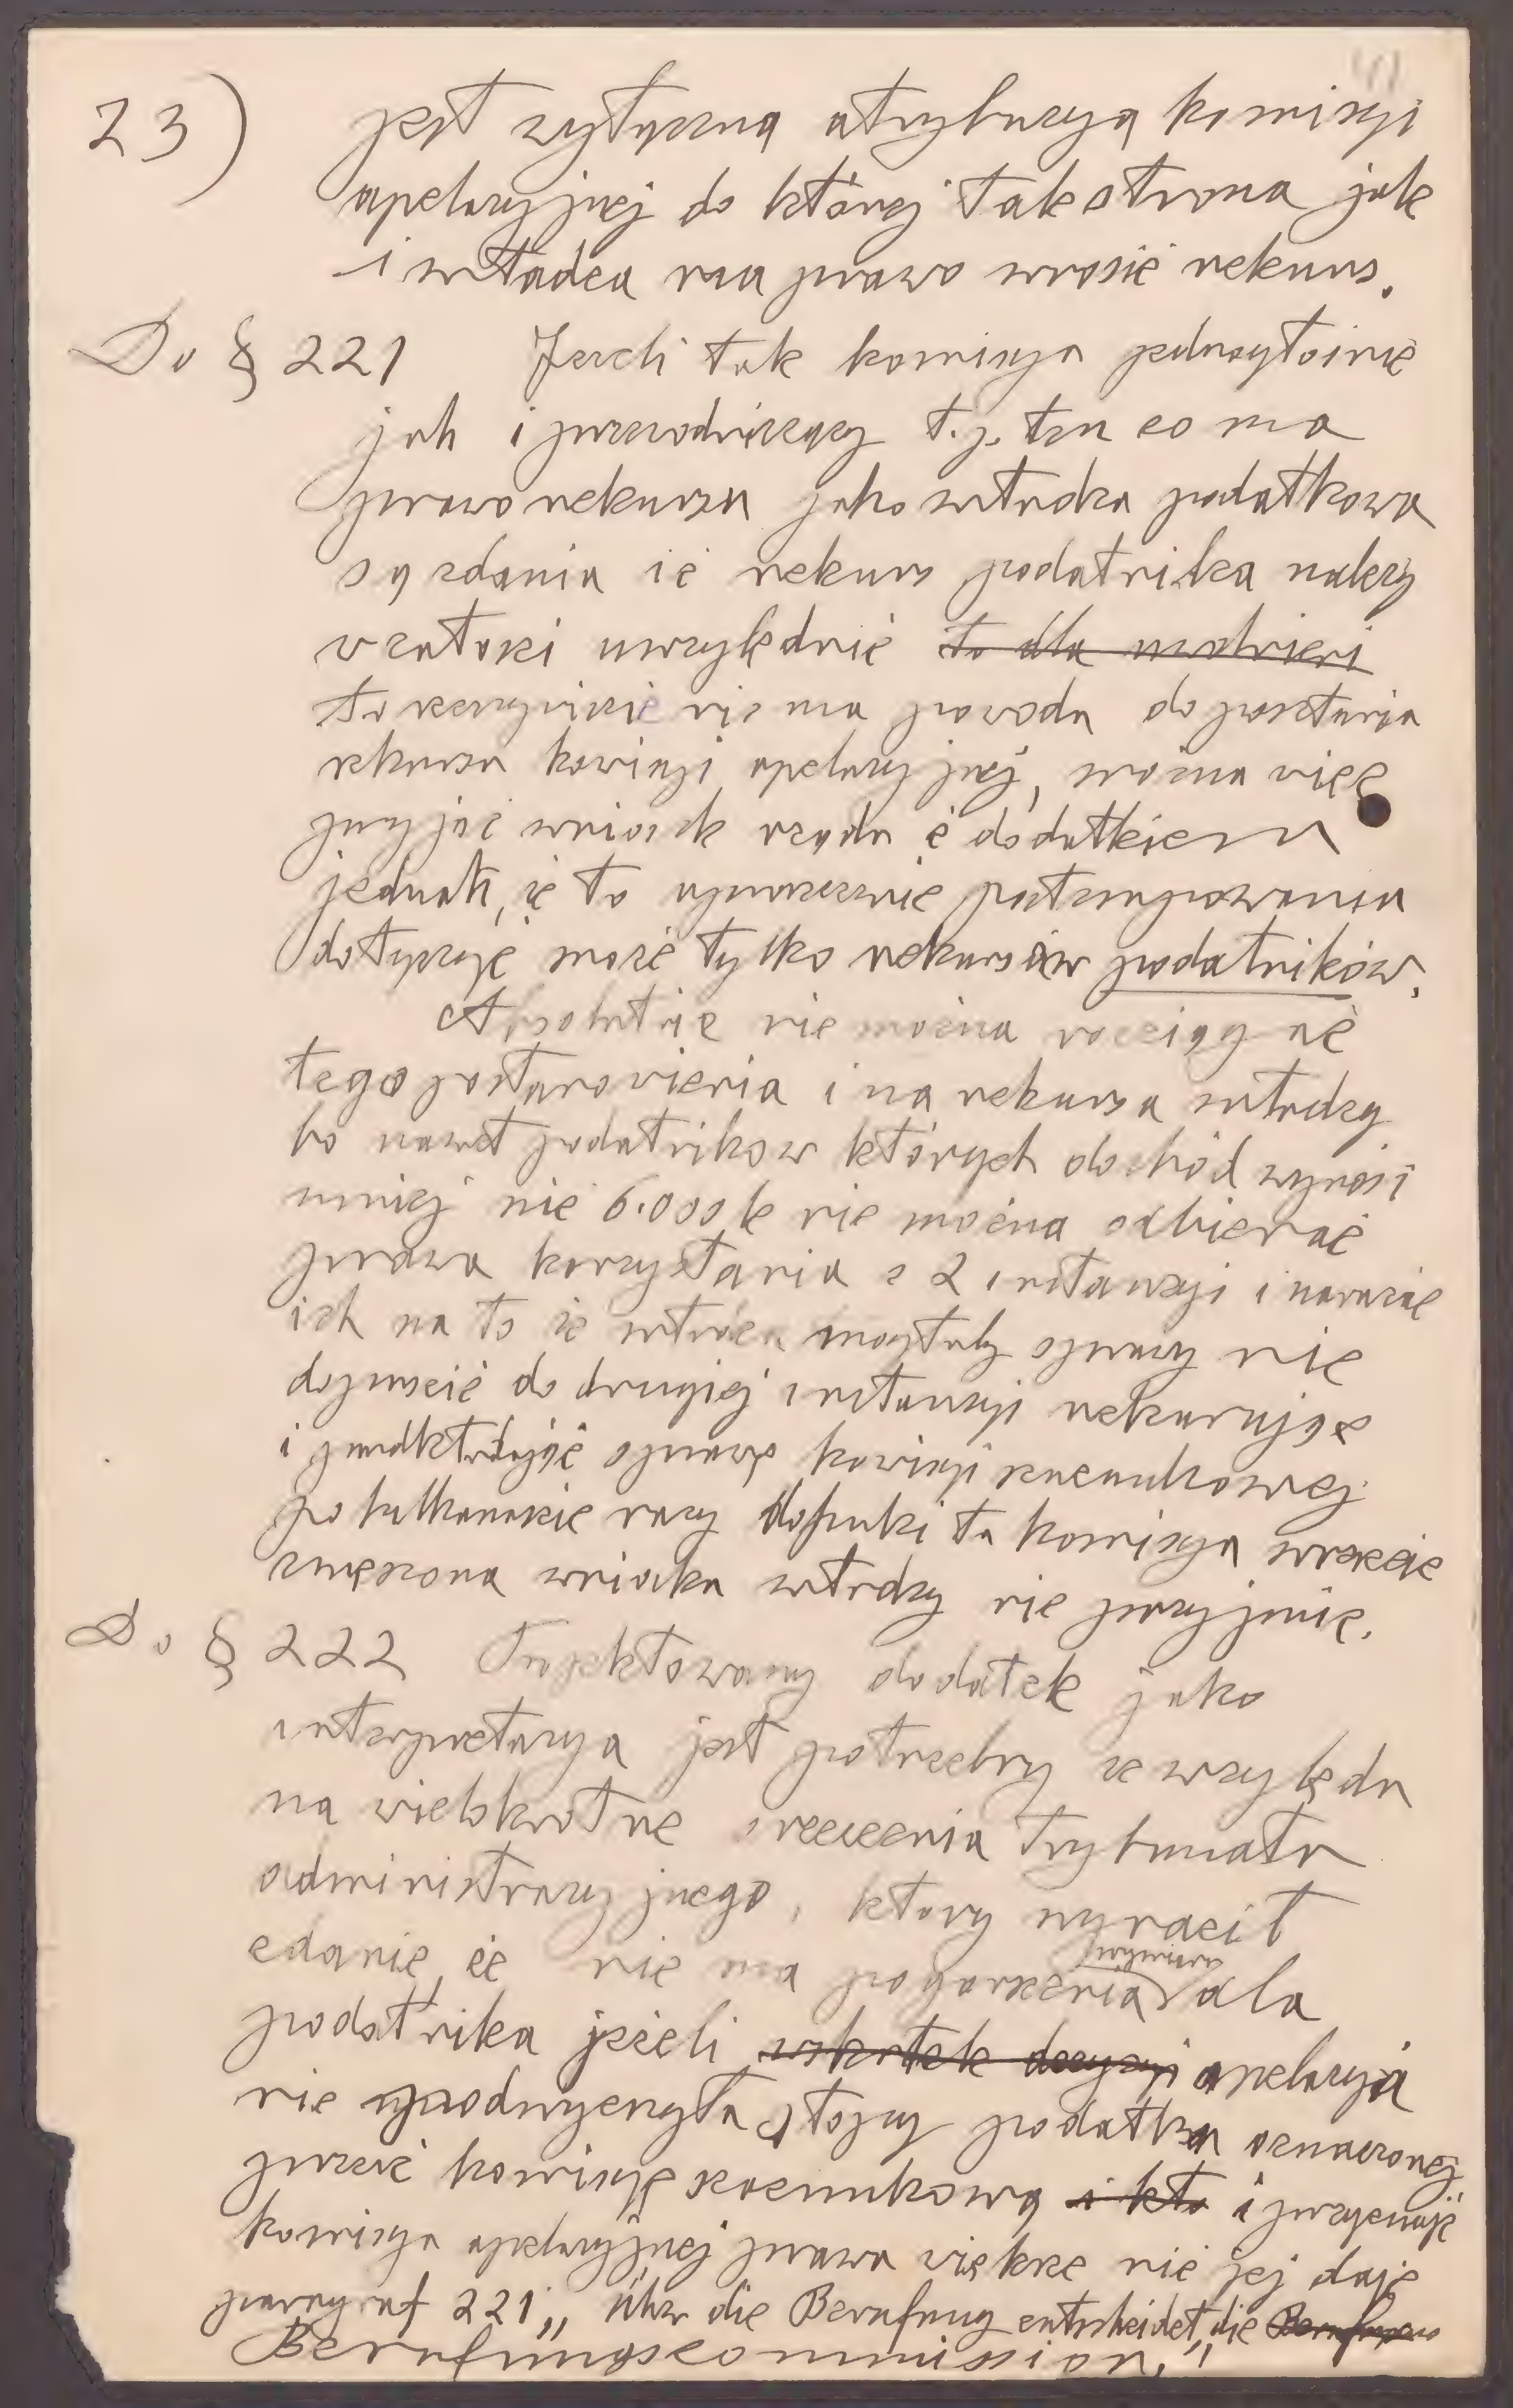 23) jest wyłączną atrybucyą komisyi
apelacyjnej do której tak strona jak
i władza ma prawo wnosić rekurs.
Do § 221 Jeżeli tak komisya jednogłośnie
jak i przewodniczący t.j. ten co ma
prawo rekursu jako władza podatkowa
są zdania iż rekurs podatnika należy
w całości uwzględnić to dla
to rzeczywiście nie ma powodu do posłania
rekursu komisyi apelacyjnej, można więc
przyjąć wniosek rządu z dodatkiem
jednak, że to uproszczenie postępowania
dotyczyć może tylko rekursów podatników.
Absolutnie nie można rozciągać
tego postanowienia i na rekursa władzy
bo nawet podatników których dochód wynosi
mniej niż 6.000 k nie można odbierać
prawa korzystania z 2 instancyi i narażać
ich na to że władza mogłaby sprawy nie
dopuścić do drugiej instancyi rekurując
i przedkładając sprawę komisyi szacunkowej
po kilkanaście razy dopuki ta komisya wreszcie
zmęczona wniosku władzy nie przyjmie.
Do § 222 Projektowany dodatek jako
interpretacya jest potrzebny ze względu
na wielokrotne orzeczenia trybunału
administracyjnego, który wyraził
zdanie, że nie ma pogorszenia wymiaru dla
podatnika jeżeli wskutek decyzyi apelacyja
nie podwyższyła stopy podatku oznaczonej
przez komisyę szacunkową i kto i przyznaje
komisyi apelacyjnej prawa większe niż jej daje
paragraf 221 „über die Berufung entscheidet die
Berufungscommission."